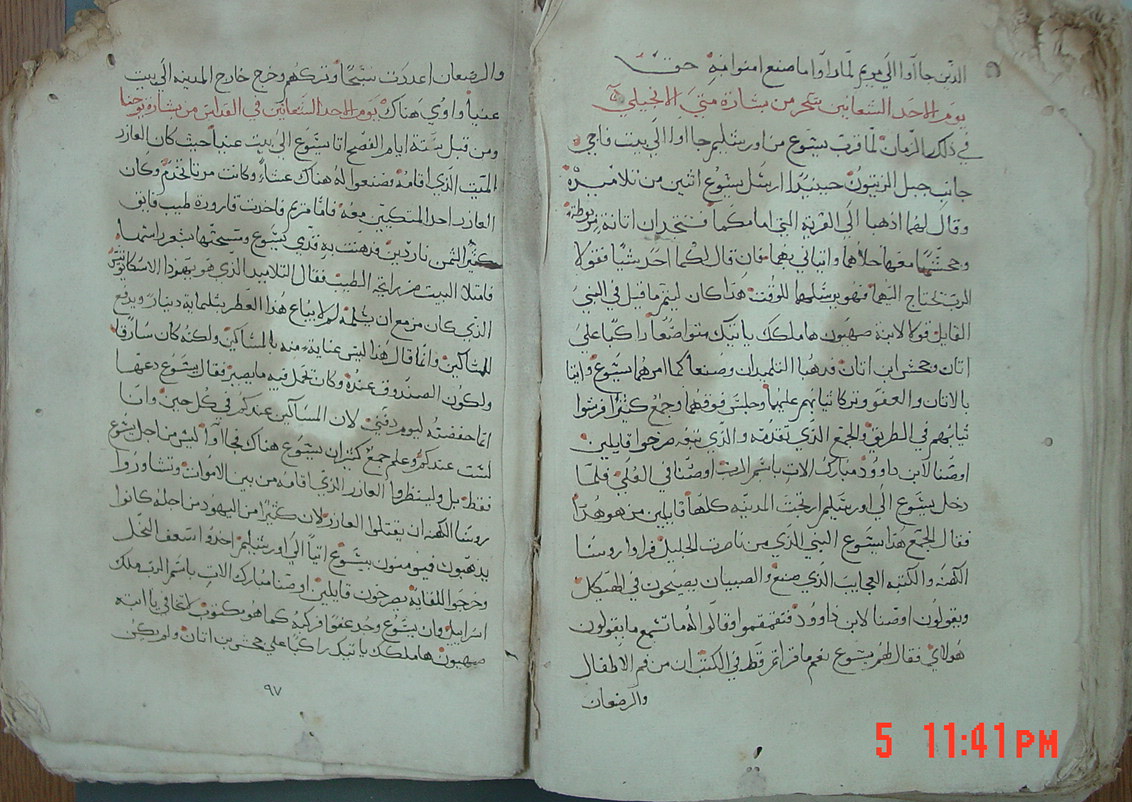 الذين جااوا الي مريم لما راوا ما صنع امنوا به حق
يوم الاحد الشعانين سحر من بشارة متي الانجيلي
في ذلك الزمان لما قرب يسوع من اورشليم جااوا الي بيت فاجي
جانب جبل الزيتون حينيذ ارسل يسوع اثنين من تلاميذه
وقال لهما اذهبا الي القرية التي امامكما فتجدان اتانة مربوطة
وجحشا معها حلاهما واتياني بهما فان قال لكما احد شيا فقولا
الرب يحتاج اليهما فهو يرسلهما للوقت هذا كان ليتم ما قيل في النبي
القايل قولا لابنة صهيون هاملكك ياتيك متواضعا راكبا علي
اتان وجحش ابن اتان فذهبا التلميذان وصنعا كما امرهما يسوع واتيا
بالاتان والعفو وتركا ثيابهم عليهما وجلس فوقهما وجمع كثير فرشوا
ثيابهم في الطريق والجمع الذي تقدمه والذي يتبعه صرخوا قايلين
اوصنا لابن داوود مبارك الات باسم الرب اوصنا في العلي فلما
دخل يسوع الي اورشليم ارتجت المدينه كلها قايلين من هو هذا
فقال الجمع هذا يسوع النبي الذي من ناصرت الجليل فراوا روسا
الكهنه والكتبه العجايب الذي صنع والصبيان يصيحون في الهيكل
ويقولون اوصنا لابن داوود فتقمقموا وقالوا له ما تسمع ما يقولون
هولاي فقال لهم يسوع نعم ما قراتم قط في الكتب ان من فم الاطفال
والرضعان
والرضعان اعددت سبحا وتركهم وخرج خارج المدينه الي بيت
عنيا واوي هناك يوم الاحد الشعانين في القداس من بشارة يوحنا
ومن قبل ستة ايام الفصح اتا يسوع الي بيت عنيا حيث كان العازر
الميت الذي اقامه فصنعوا له هناك عشاء وكانت مرتا تخدم وكان
العازر احد المتكيين معه فاما مريم فاخدت قارورة طيب فايق
كثير الثمن ناردين فدهنت به قدمي يسوع ومسحتهما بشعر راسها
فامتلا البيت من رايحة الطيب فقال التلاميد الذي هو يهودا الاسخريوطي
الذي كان مزمع ان يسلمه لم لا يباع هذا العطر بثلماية دينار ويدفع
للمساكين وانما قال هذا ليس عناية منه بالمساكين ولكنه كان سارقا
ولكون الصندوق عنده وكان تحمل فيه ما يصير فقال يسوع دعها
انما حفضته ليوم دفني لان المساكين عندكم في كل حين وانا
لست عندكم وعلم جمع كثير ان يسوع هناك فجااوا ليس من اجل يسوع
فقط بل ولينظروا العازر الذي اقامه من بين الاموات وتشاوروا
روسا الكهنه ان يقتلوا العازر لان كثيرا من اليهود من اجله كانوا
يذهبون فيومنون بيسوع اتيا الي اورشليم اخدوا سعف النخل
وخرجوا للقايه يصرخون قايلين اوصنا مبارك الات باسم الرب ملك
اسراييل وان يسوع وجد عفوا فركبه كما هو مكتوب لا تخافي يا ابنه
صهيون هاملكك ياتيك راكبا علي جحش بن اتان ولم يكن
٩٧
5 11:41PM